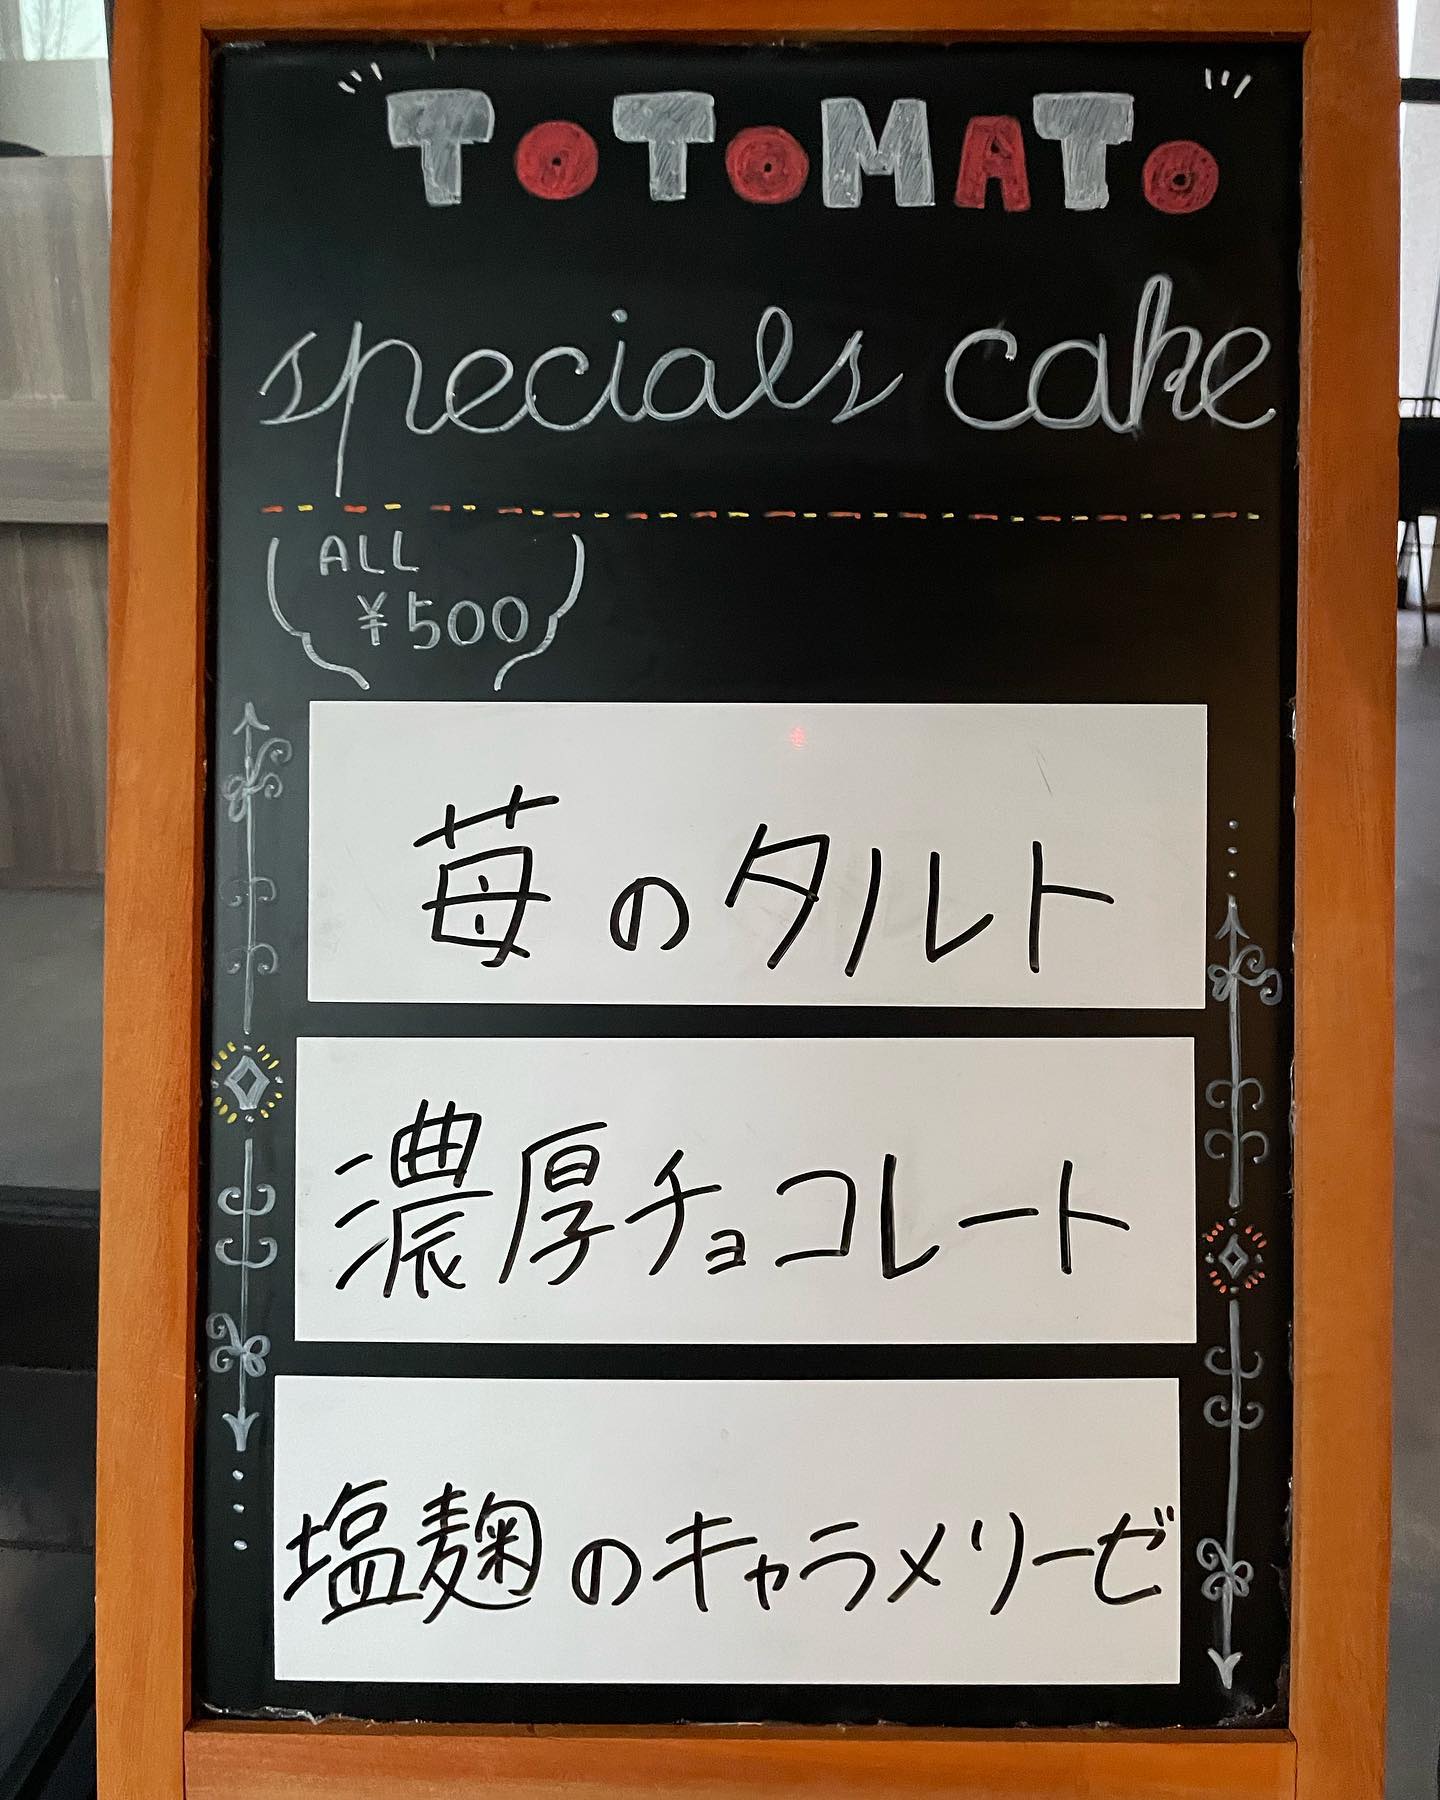 TOTOMATO
specials cake
ALL
¥500
苺のタルト
濃厚チョコレート
塩麹のキャラメリーゼ